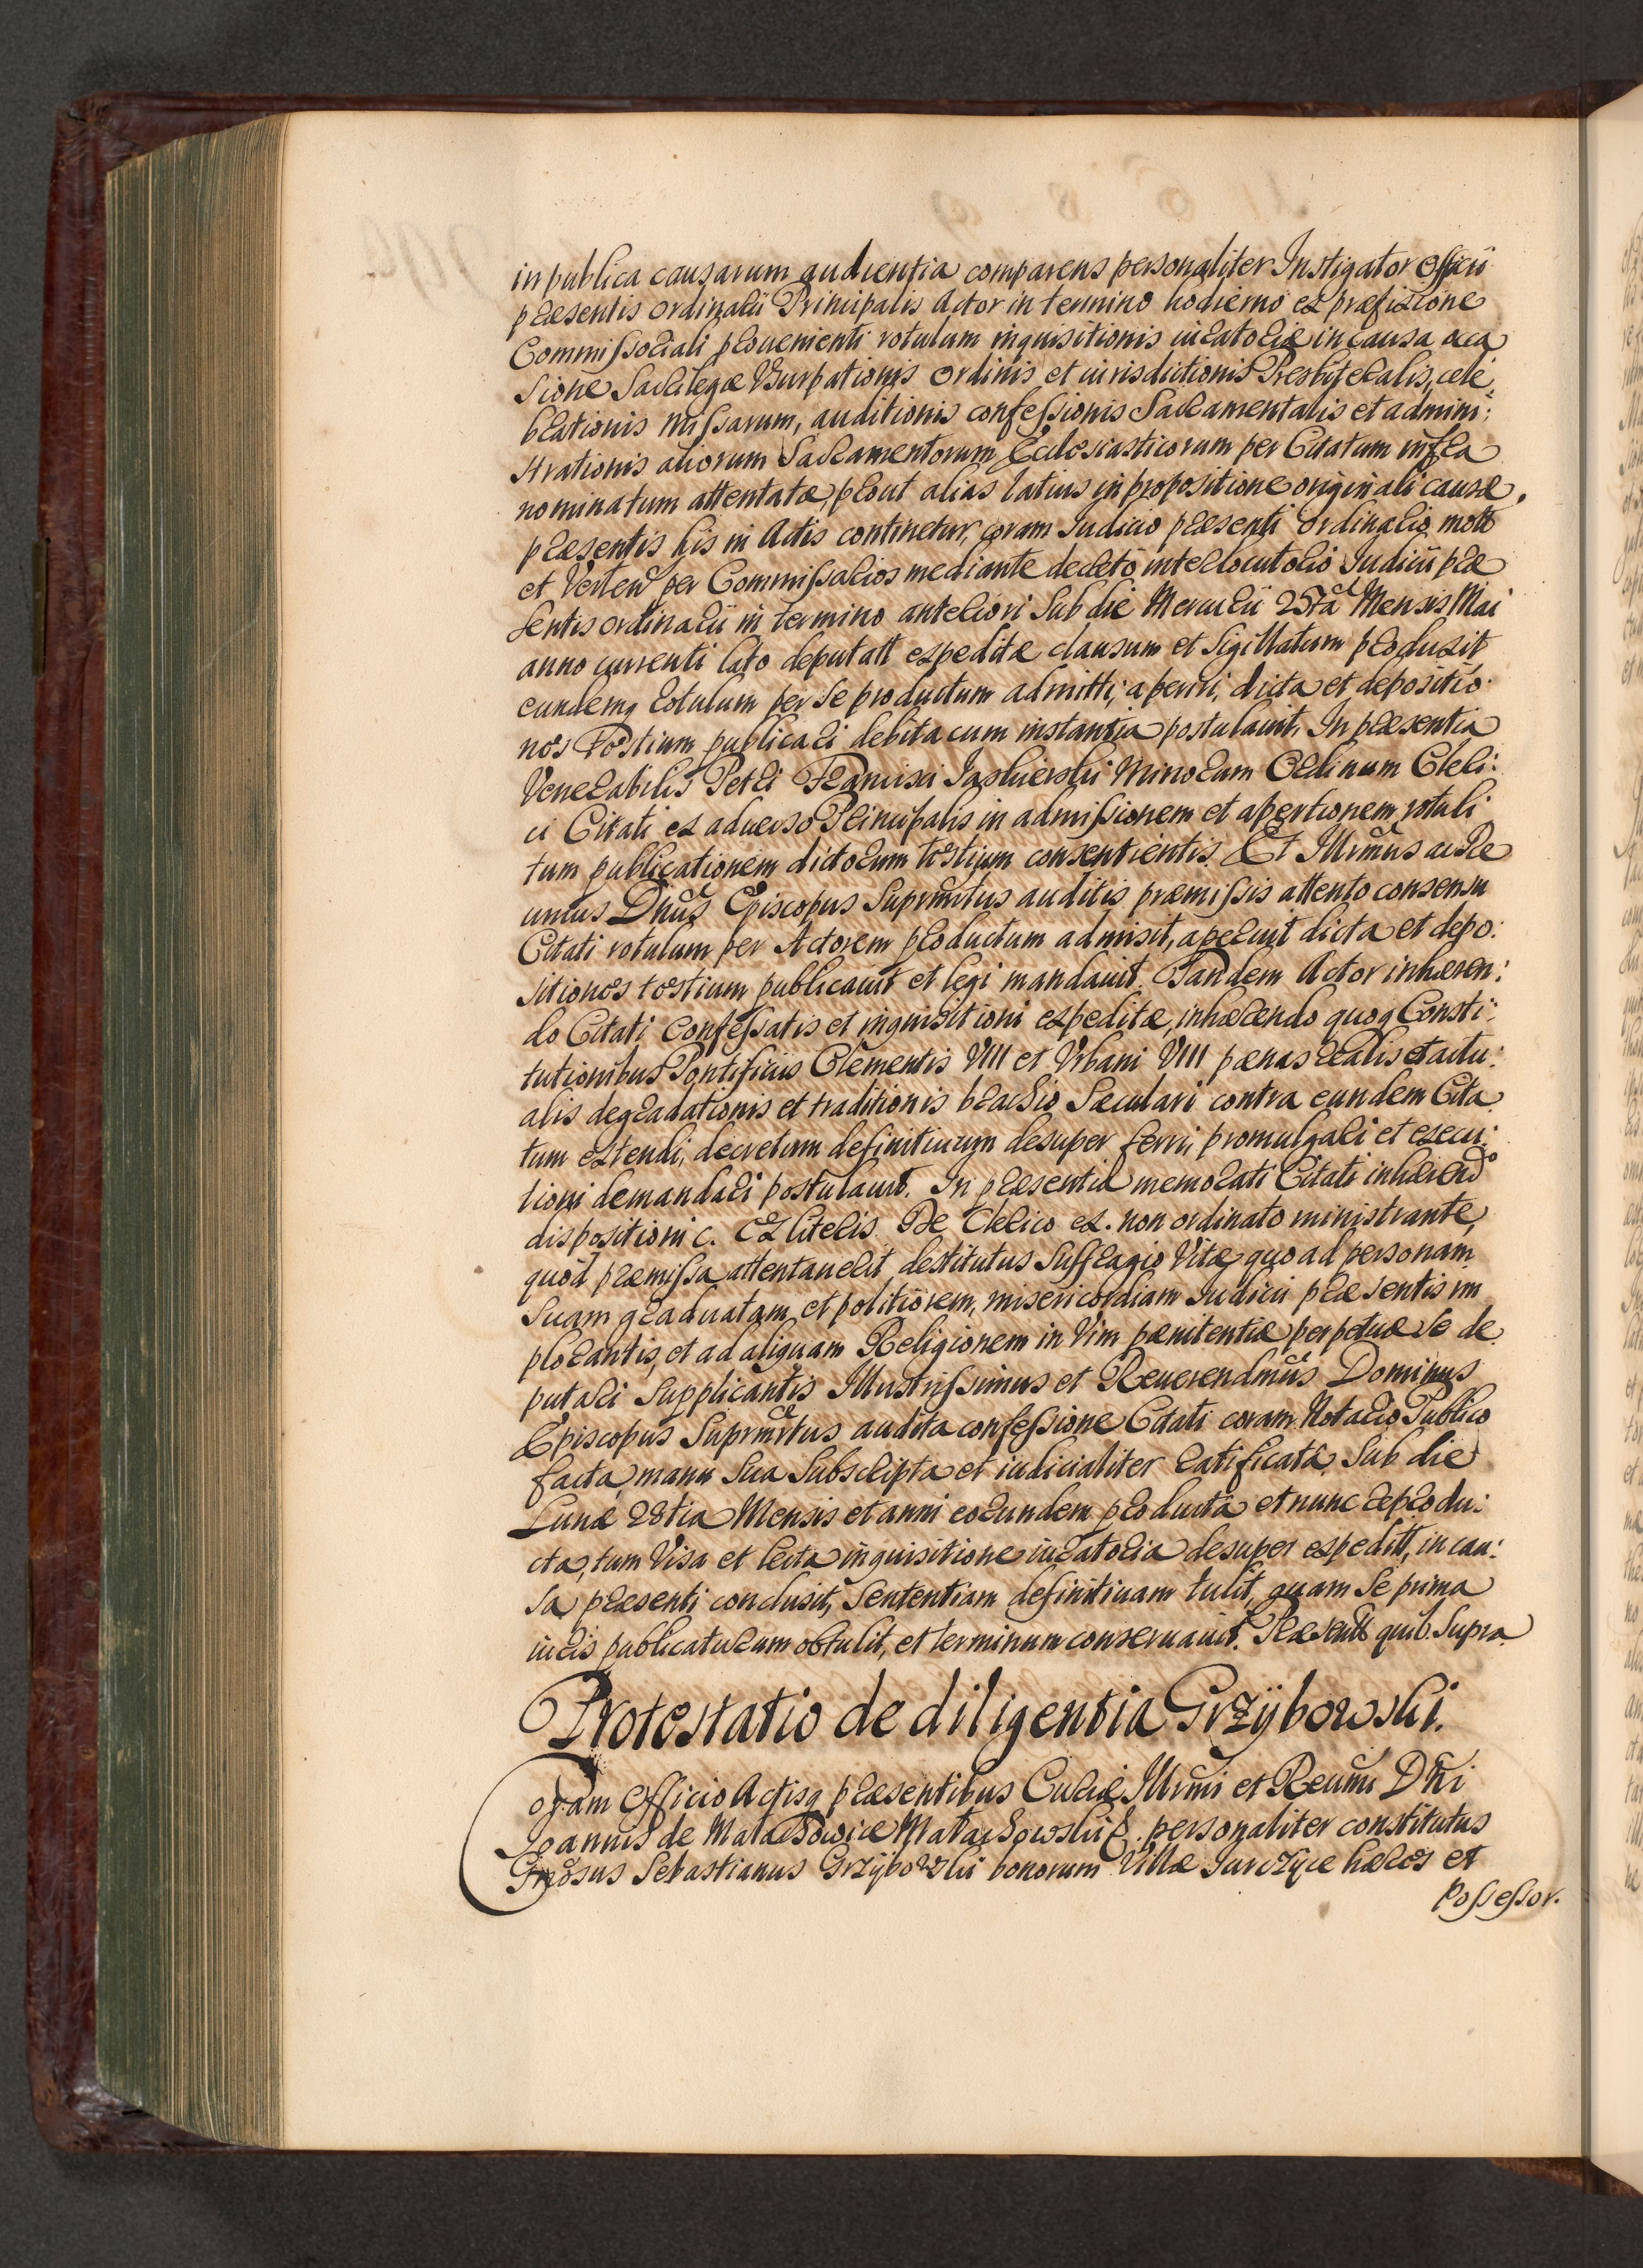 in publica causarum audientia comparens personaliter Instigator Officii
præsentis Ordinarii Principalis Actor in termino hodierno ex præfixione
Commissoriali provenienti rotulum inquisitionis iuratoriæ in causa occa
sione Sacrilegæ Vsurpationis Ordinis et iurisdictionis Presbyteralis, cele
brationis Missarum, auditionis confessionis Sacramentalis et admini:
strationis aliorum Sacramentorum Ecclesiasticorum per Citatum infra
nominatum attentatæ, prout alias latius in propositione originali causæ,
præsentis his in Actis continetur, coram Iudicio præsenti Ordinario mott
et Verten per Commissarios mediante decreto interlocutorio Iudicii præ
sentis ordinarii in termino anteriori Sub die Mercurii 25ta Mensis Mai
anno currenti lato deputatt expeditæ clausum et Sigillatum produxit
eundemq rotulum per Se productum admitti, aperiri, dicta et depositio
nes Testium publicari debita cum instantia postulavit. In præsentia
Venerabilis Petri Francisci Jaskierski Minorum Ordinum Cleri:
ci Citati ex adverso Principalis in admissionem et apertionem rotuli
tum publicationem dictorum testium consentientis. Et Illrmus ac Re
umus Dnus Episcopus Suprmtus auditis præmissis attento consensu
Citati rotulum per Actorem productum admisit, aperuit dicta et depo:
sitiones testium publicavit et legi mandavit. Tandem Actor inhæren:
do Citati Confessatis et inquisitioni expeditæ, inhærendo quoq Consti:
tutionibus Pontificiis Clementis VIII et Vrbani VIII pænas realis et actu:
alis degradationis et traditionis brachio Sæculari contra eundem Cita
tum extendi, decretum definitivum desuper ferri, promulgari et execu:
tioni demandari postulavit. In præsentia memorati Citati inhærendo
dispositioni c. Ex literis De Clerico ex. non ordinato ministrante,
quod præmissa attentaverit destitutus Suffragio Vitæ quo ad personam
Suam graduatam et politiorem, misericordiam Iudicii præsentis im
plorantis, et ad aliquam Religionem in Vim pænitentiæ perpetuæ Se de
putari Supplicantis Illustrissimus et Reverendmus Dominus
Episcopus Suprmtus audita confessione Citati coram Notario Publico
facta, manu Sua Subscripta et iudicialiter ratificata, Sub die
Lunæ 28tia Mensis et anni eorundem producta et nunc reprodu:
cta, tum Visa et lecta inquisitione iuratoria desuper expeditt, in cau:
sa præsenti conclusit, Sententiam definitivam tulit, quam Se prima
iuris publicaturum obtulit, et terminum conservavit. Præsentt quib. Supra
Protestatio de diligentia Grzÿbowski.
Coram Officio Actisq præsentibus Curiæ Illrmi et Reumi Dni
Joannis de Małachowice Małachowski E. personaliter constitutus
Gnosus Sebastianus Grzÿbowski bonorum Villæ Jurczÿce hæres et
Possessor.